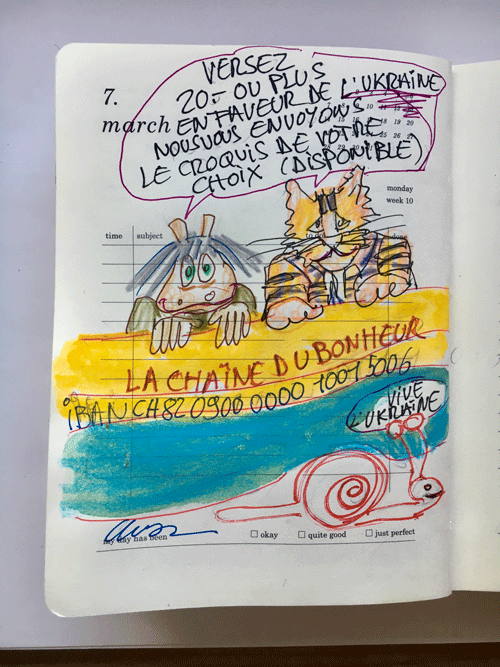 VERSEZ
20.- OU PLUS
EN FAVEUR DE L'UKRAINE
NOUS VOUS ENVOYONS
LE CROQUIS DE VOTRE
CHOIX (DISPONIBLE)
7.
march
10
19 20
26
monday
week 10
time subject done
LA CHAÎNE DU BONHEUR
iBAN CH82 0900 0000 1001 5006 1
VIVE
L'UKRAINE
my day has been okay quite good just perfect